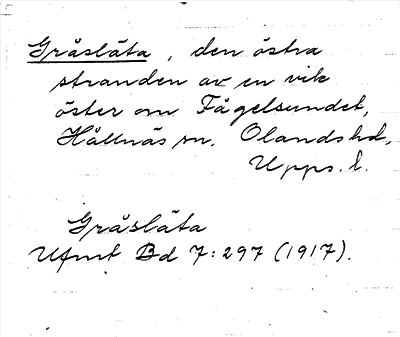 Gråsläta, den östra
stranden av en vik
öster om Fågelsundet,
Hållnäs sn. Olands hd,
Upps. l.
Gråsläta
Ufmt Bd 7:297 (1917).